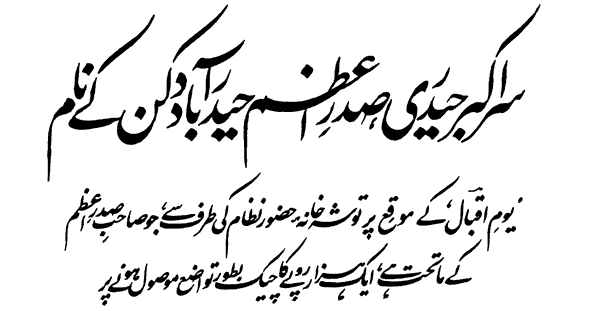 سر اکبر حیدری، صدرِ اعظم حیدر آباد دکن کے نام
’یومِ اقبالؔ‘ کے موقع پر توشہ خانۂ حضور نظام کی طرف سے، جو صاحب صدرِ اعظم
کے ماتحت ہے، ایک ہزار روپے کا چیک بطور تواضع موصول ہونے پر